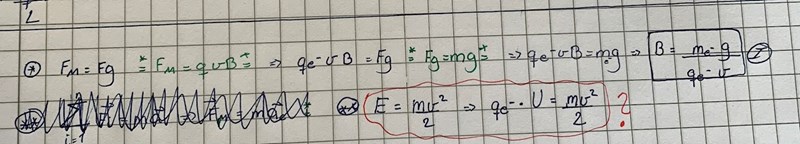 2
⊛ Fm = Fg *= Fm = qvB =* ⇒ qe⁻vB = Fg *= Fg = mg =* ⇒ qe⁻vB = mg ⇒ B = me⁻g / qe⁻v
i=1 E = mv²/2 ⇒ qe⁻ · U = mv²/2 ?